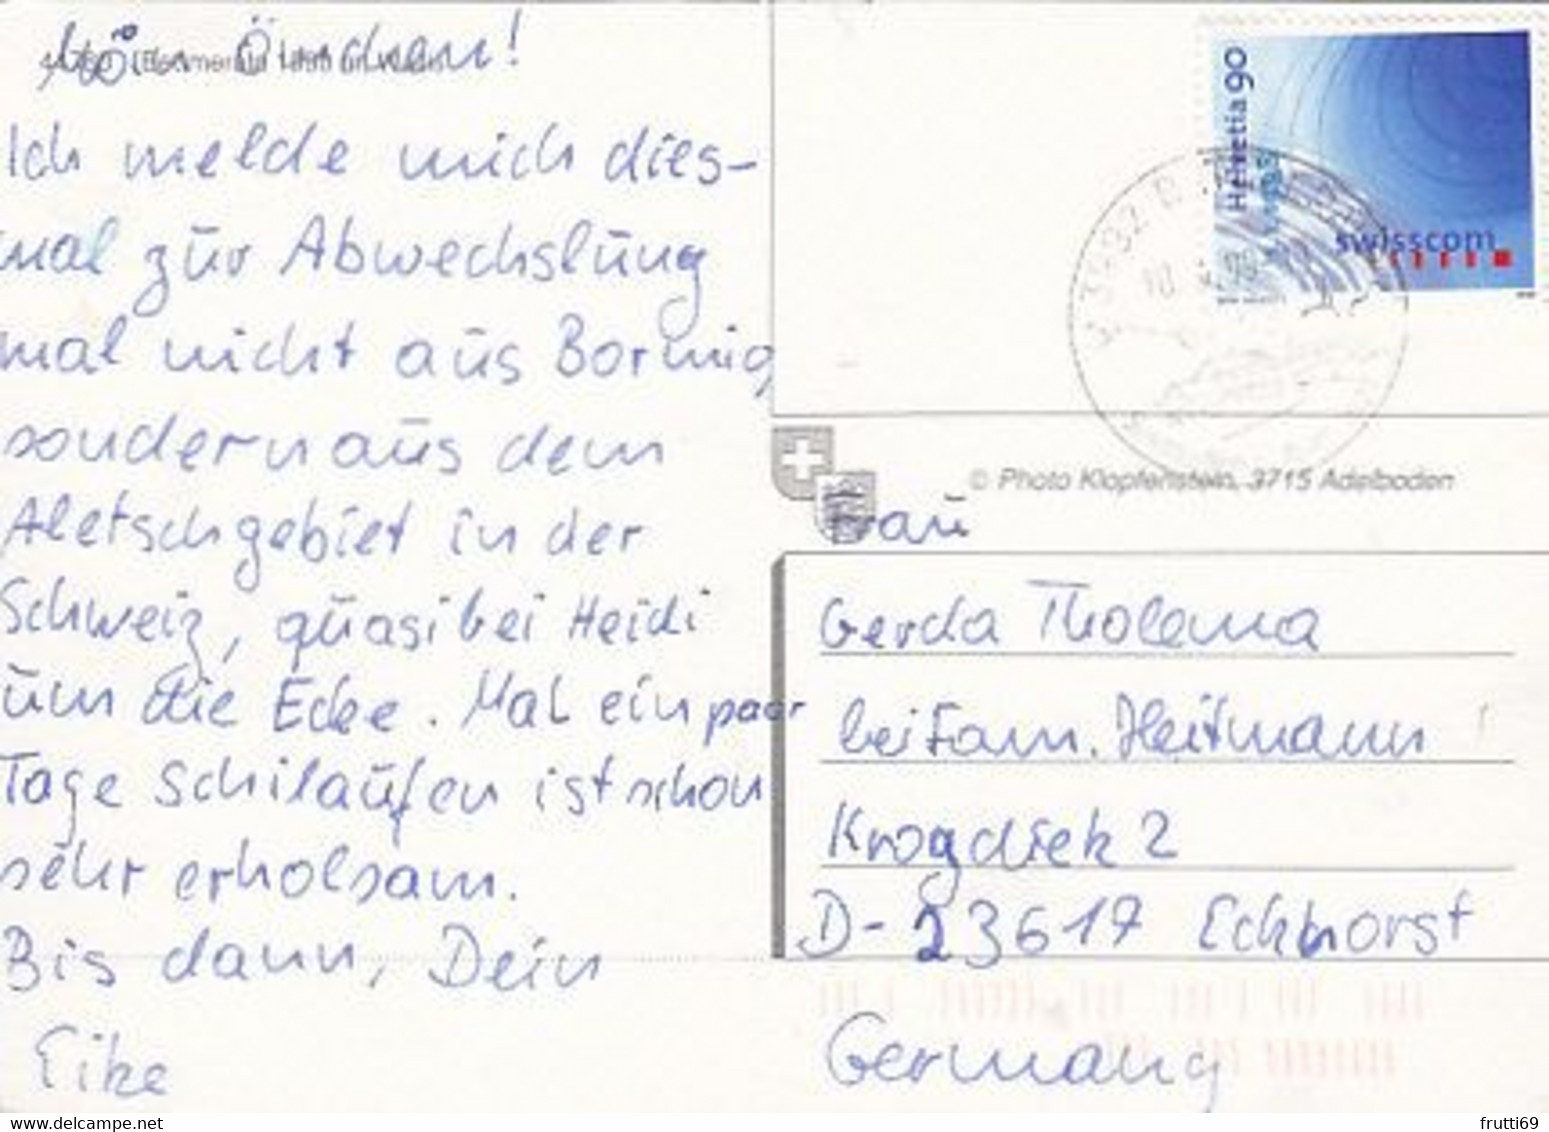 Mön Ömchen!
Ich melde mich dies-
mal zur Abwechslung
mal nicht aus Bormio,
sondern aus dem
Aletschgebiet in der
Schweiz, quasi bei Heidi
um die Ecke. Mal ein paar
Tage Schilaufen ist schon
sehr erholsam.
Bis dann, Dein
Eike
Helvetia 90
swisscom
© Photo Klopfenstein, 3715 Adelboden
Frau
Gerda Tholema
bei Fam. Heitmann
Krogdiek 2
D-23617 Eckhorst
Germany
frutti69